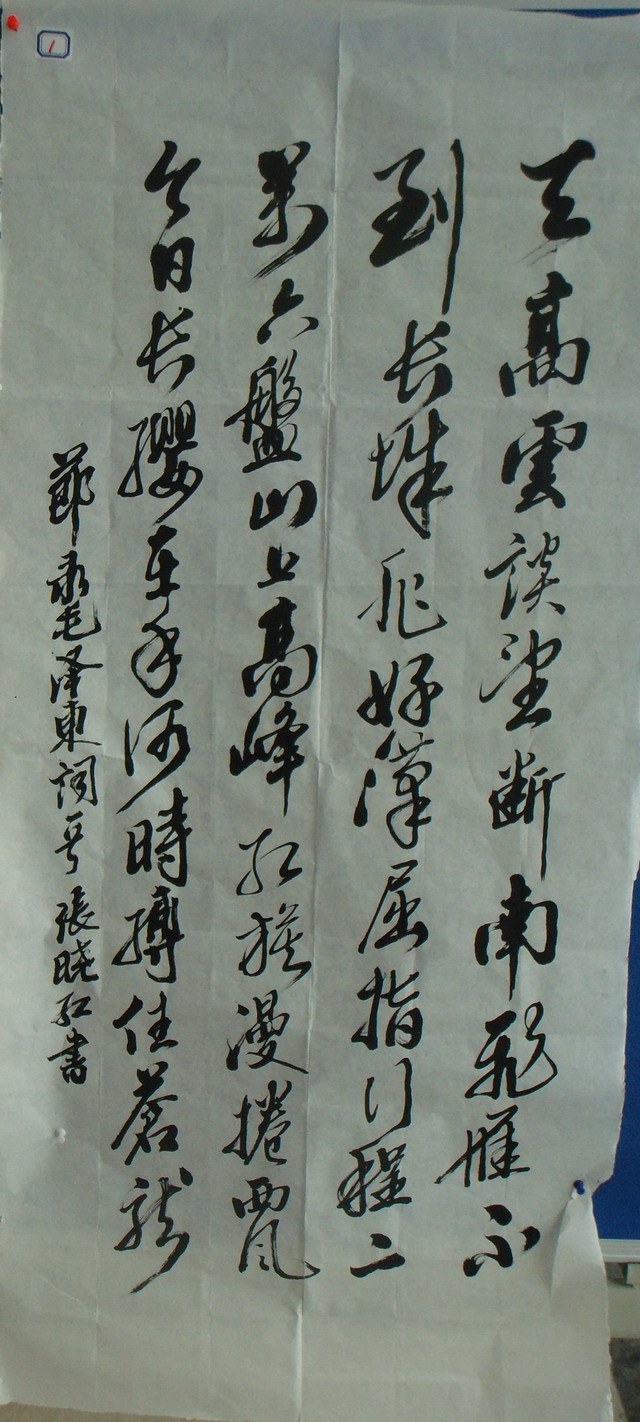 天高雲淡望断南飛雁不
到长城非好漢屈指行程二
萬六盤山上高峰红旗漫捲西風
今日长纓在手何時縛住蒼龙
節录毛泽東词一首 張晓红書
1